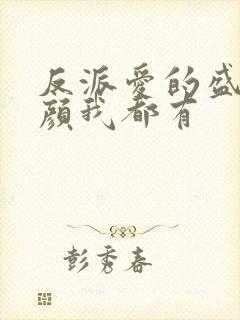 反派爱的盛
颜我都有
彭秀春